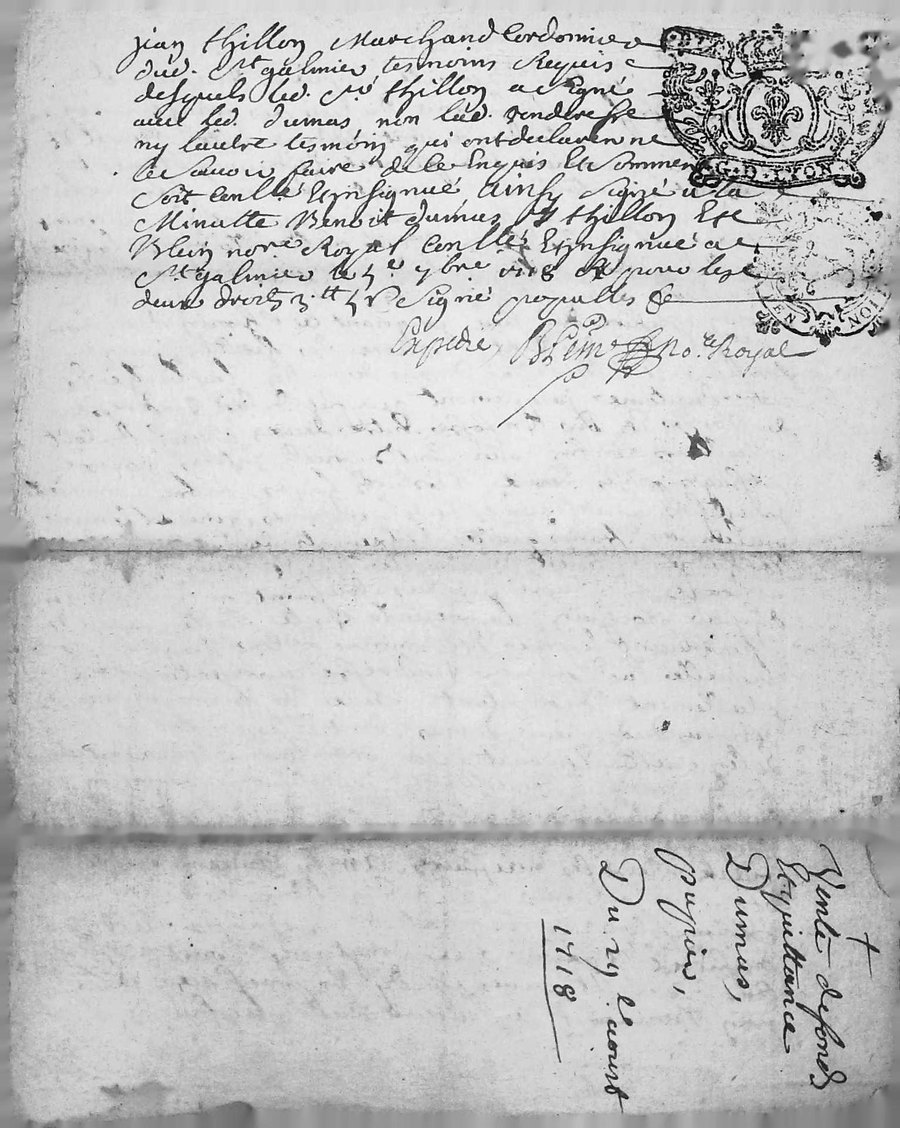 jean thillon Marchand Cordonnier
dud. St galmier tesmoins Requis
desquels led. Sr thillon a signé
avec led. dumas non lad. venderesse
ny lautre tesmoin qui ont declaré ne
le scavoir faire de ce Enquis Et Sommés
Soit Conllé Et Insignué ainsy Signé a la
Minutte Benoit dumas thillon Et
Blein nore. Royal Conllé Et Insignué a
St galmier le 5e 7bre 1718 pour les
deux droits 3.tt Signé
Expedié, Blein No.re Royal
G·D·LYON
Vente de fonds
Et quittance
Dumas,
pupier,
Du 29 aoust
1718